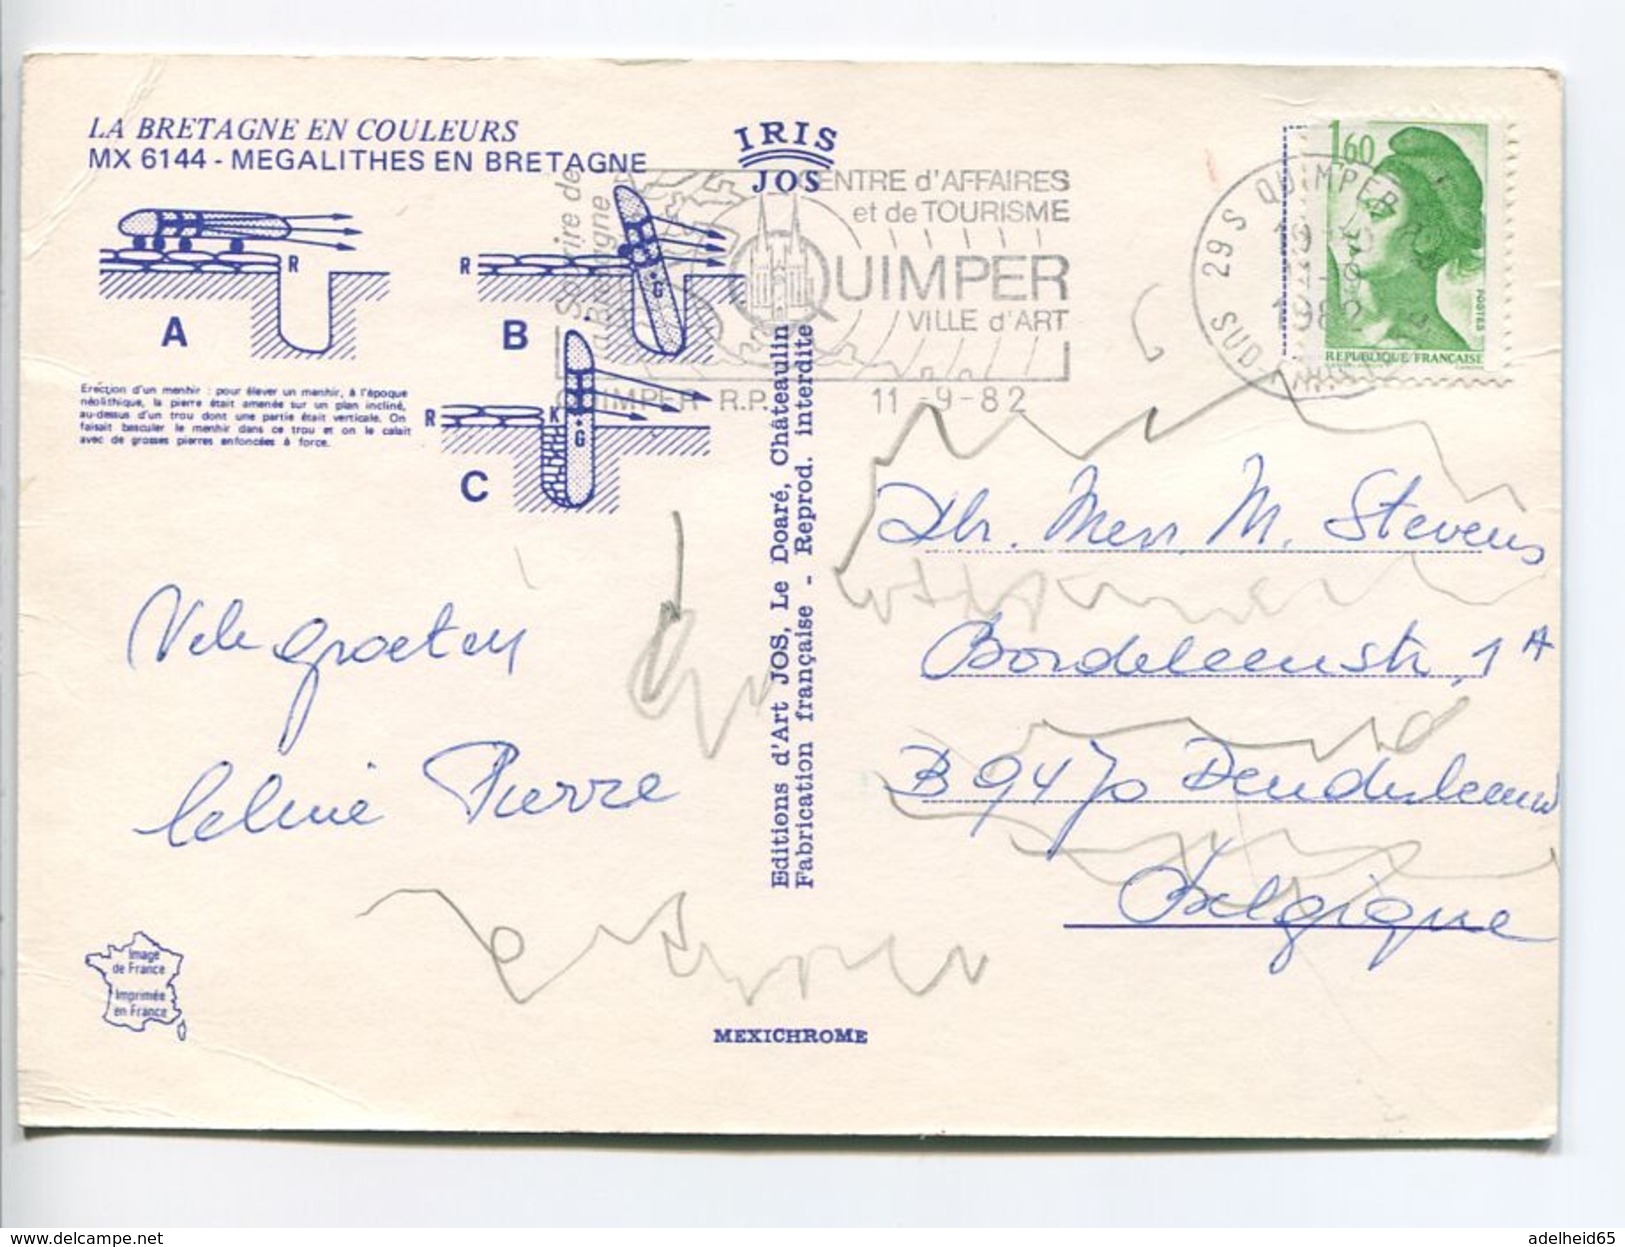 LA BRETAGNE EN COULEURS
MX 6144 - MEGALITHES EN BRETAGNE
IRIS
JOS
R
A
R
G
B
R
K
G
C
Erection d'un menhir : pour élever un menhir, à l'époque
néolithique, la pierre était amenée sur un plan incliné,
au-dessus d'un trou dont une partie était verticale. On
faisait basculer le menhir dans ce trou et on le calait
avec de grosses pierres enfoncées à force.
CENTRE d'AFFAIRES
et de TOURISME
QUIMPER
VILLE d'ART
de
Bretagne
QUIMPER R.P.
11-9-82
29S QUIMPER
1982
1,60
POSTES
REPUBLIQUE FRANÇAISE
Editions d'Art JOS, Le Doaré, Châteaulin
Fabrication française - Reprod. interdite
Vele groeten
Pierre
Mevr. M. Stevens
1A
B 9470 Denderleeuw
Belgique
Image
de France
Imprimée
en France
MEXICHROME
adelheid65